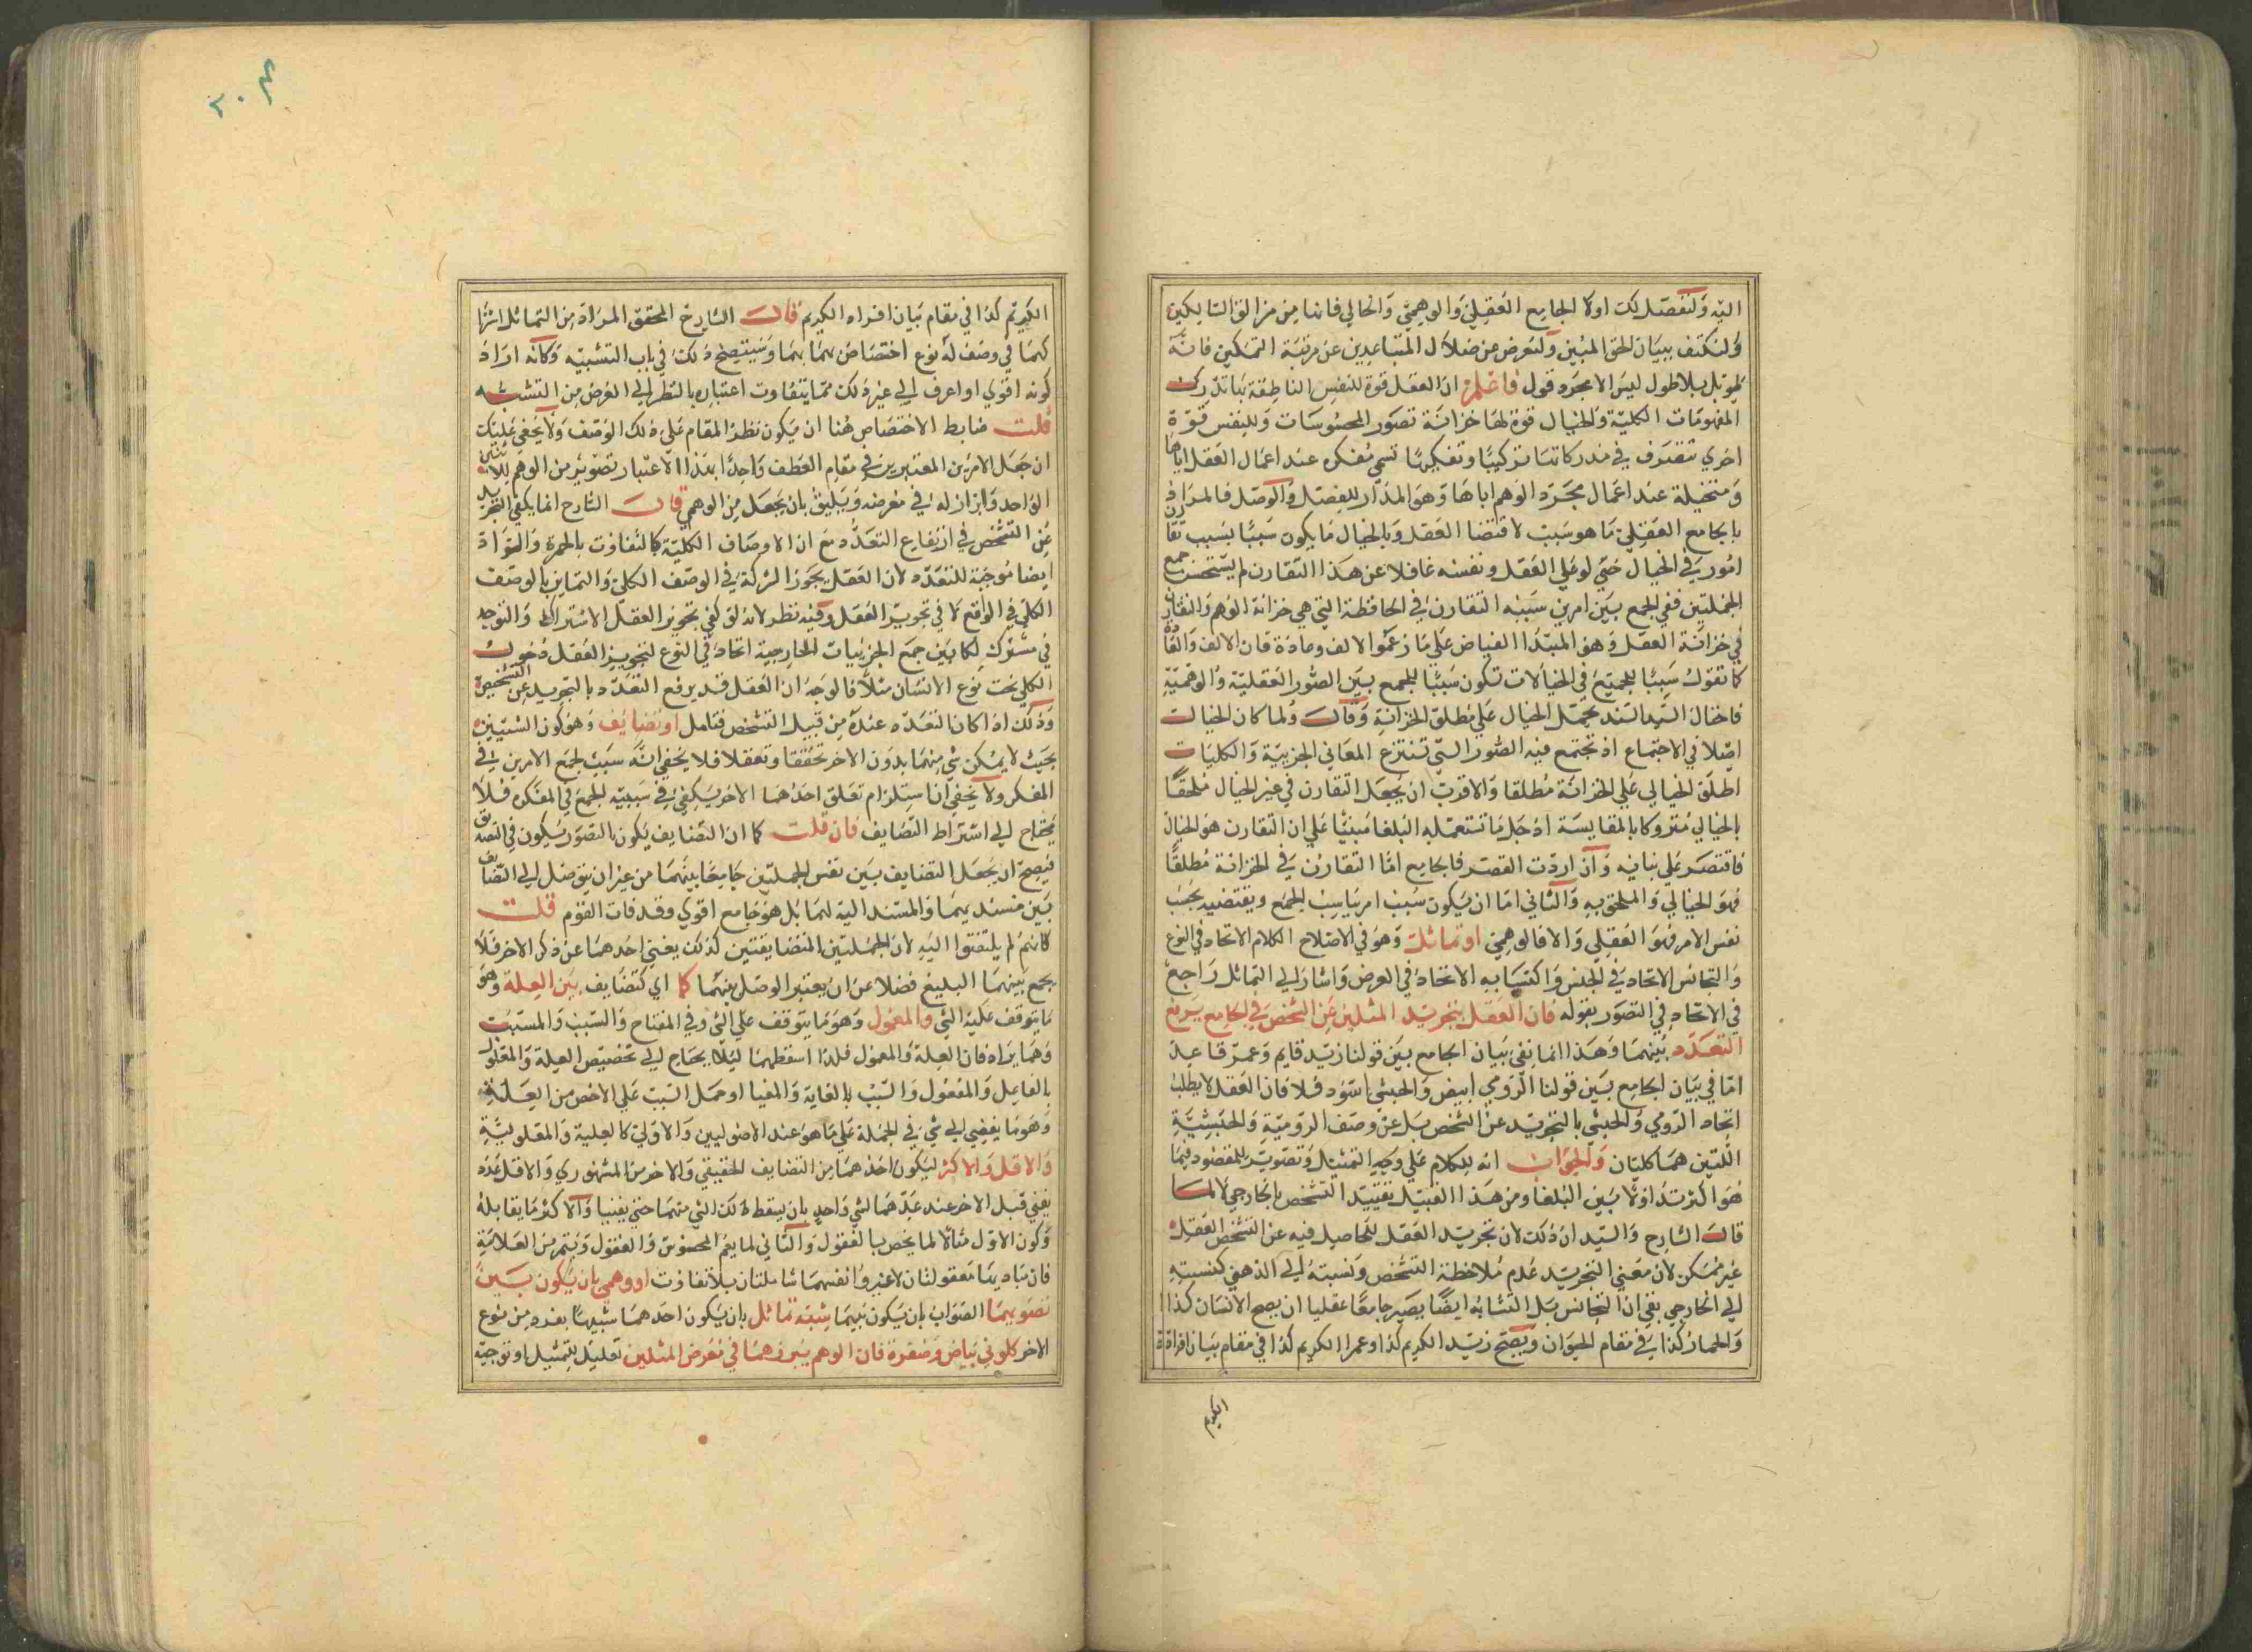 اليه ولنفصل لك اولا الجامع العقلي والوهمي والخالي فانها من مزالق السالكين
ولنكتف ببيان الحق المبين ولنعرض عن ضلال المتباعدين عن مرتبة التمكين فانه
تطويل بلا طول ليس الا مجرد قول فاعلم ان العقل قوة للنفس الناطقة بها تدرك
المفهومات الكلية والخيال قوة لها خزانة تصور المحسوسات وللنفس قوة
اخري تتصرف في مدركاتها تركيبا وتفكيكا تسمي مفكره عند اعمال العقل اياها
ومتخيلة عند اعمال مجرد الوهم اياها وهو المدار للفصل والوصل فالمراد
بالجامع العقلي ما هو سبب لاقتضا العقل وبالخيال ما يكون سببا بسبب تقارن
امور في الخيال حتي لو خلي العقل ونفسه غافلا عن هذا التقارن لم يستحسن جمع
الجملتين ففي الجمع بين امرين سببه التقارن في الحافظة التي هي خزانة الوهم والتقارن
في خزانة العقل وهو المبدا الفياض علي ما زعموا الالف وعادة فان الالف والعادة
كما تقول سببا للجمع في الخيالات تكون سببا للجمع بين الصور العقلية والوهمية
فاختال السيد السند بحمل الخيال علي مطلق الخزانة وقال ولما كان الخيال
اصلا في الاجتماع اذ تجتمع فيه الصور التي تنتزع المعاني الجزيية والكليات
اطلق الخيالي علي الخزانة مطلقا والاقرب ان يجعل التقارن في غير الخيال ملحقا
بالخيالي متروكا بالمقايسة اذ جل ما تستعمله البلغا مبنيا علي ان التقارن هو الخيال
فاقتصر علي بيانه وان اردت القصر فالجامع اما التقارن في الخزانة مطلقا
فهو الخيالي والملحق به والثاني اما ان يكون سبب امر يناسب الجمع ويقتضيه بحسب
نفس الامر فهو العقلي والا فالوهمي او تماثل وهو في الاصلاح الكلام الاتحاد في النوع
والتجانس الاتحاد في الجنس واكتسابه الاتحاد في العرض واشار الي التماثل راجع
في الاتحاد في التصور بقوله فان العقل بتجريد المثلين عن الشخص في الجامع يرفع
التعدد بينهما وهذا انما نفي بيان الجامع بين قولنا زيد قايم وعمرو قاعد
اما في بيان الجامع بين قولنا الرومي ابيض والحبشي اسود فلا فان العقل لا يطلب
اتحاد الرومي والحبشي بالتجريد عن الشخص بل عن وصف الرومية والحبشية
اللتين هما كليان والجواب انه للكلام علي وجه التمثيل وتصوير للمقصود فيما
هو اكثر تداولا بين البلغا ومن هذا القبيل تقييد التشخص بالخارجي لا لما
قال الشارح والسيد ان ذلك لان تجريد العقل للحاصل فيه عن الشخص العقلي
غير ممكن لان معني التجريد عدم ملاحظة التشخص ونسبته الي الذهني كنسبته
الي الخارجي بقي ان التجانس بل التشابه ايضا يصير جامعا عقليا ان يصح الانسان كذا
والحمار كذا في مقام الحيوان ويصح زيد الكريم كذا وعمرا الكريم كذا في مقام بيان افراد
الكريم
الكريم كذا في مقام بيان افراد الكريم قال الشارح المحقق المراد من التماثل اشتراكهما
في وصف له نوع اختصاص بهما وسيتضح ذلك في باب التشبيه وكانه اراد
كونه اقوي او اعرف الي غير ذلك مما يتفاوت اعتباره بالنظر الي الغرض من التشبيه
قلت ضابط الاختصاص هنا ان يكون نظر المقام علي ذلك الوصف ولا يخفي عليك
ان جعل الامرين المعتبرين في مقام العطف واحدا بهذا الاعتبار تصوير من الوهم للاثنين
الواحد وابراز له في معرضه ويليق بان يجعل من الوهمي قال الشارح انما يكفي التجريد
عن التشخص في ارتفاع التعدد مع ان الاوصاف الكلية كالتفاوت بالحمرة والسواد
ايضا موجبة للتعدد لان العقل يجوز الشركة في الوصف الكلي والتمايز بالوصف
الكلي في الواقع لا في تجويز العقل وفيه نظر لانه لو كفي تجويز العقل الاشتراك والتوجه
في مشترك لكان بين جمع الجزئيات الخارجية اتحاد في النوع لتجويز العقل دخول
الكلي تحت نوع الانسان مثلا فالوجه ان العقل قد يرفع التعدد بالتجريد عن التشخيص
وذلك اذا كان التعدد عنده من قبيل التشخص فتامل او تضايف وهو كون الشيئين
بحيث لا يمكن شي منهما بدون الاخر تحققا وتعقلا فلا يخفي انه سبب لجمع الامرين في
المفكر ولا يخفي ان استلزام تعلق احدهما الاخر يكفي في سببيته للجمع في المفكره فلا
يحتاج الي اشتراط التضايف فان قلت كما ان التضايف يكون بالتصور يكون في التصديق
فيصح ان يجعل التضايف بين نفس الجملتين جامعا بينهما من غير ان يتوصل الي التضايف
بين مسند يهما والمسند اليه لهما بل هو جامع اقوي وقد فات القوم قلت
كانهم لم يلتفتوا اليه لان الجملتين المتضايفتين كذلك يغني احدهما عن ذكر الاخر فلا
يجمع بينهما البليغ فضلا عن ان يعتبر الوصل بينهما كما اي كتضايف بين العلة وهو
ما يتوقف عليه الشي والمعلول وهو ما يتوقف علي الشي وفي المفتاح والسبب والمسبب
وهما يرادفان العلة والمعلول فلذا اسقطهما ليلا يحتاج الي تخصيص العلة والمعلول
بالفاعل والمفعول والسبب بالغاية والمغيا او حمل السبب علي الاخص من العلة
وهو ما يفضي الي شي في الجملة علي ما هو عند الاصوليين والاولي كالعلية والمعلولية
والاقل والاكثر ليكون احدهما من التضايف الحقيقي والاخر من المشهوري والاقل عدد
يفني قبل الاخر عند عدهما لشي واحد بان يسقط ذلك الشي منهما حتي يفنيا والاكثر ما يقابله
وكون الاول مثالا لما يخص بالمعقول والثاني لما يعم المحسوس والمعقول ويتم من العلامة
فان مباديهما معقولتان لا غير وانفسهما شاملتان بلا تفاوت او وهمي بان يكون بين
تصويهما الصواب بان يكون بينهما شبه تماثل بان يكون احدهما شبيها بفرد من نوع
الاخر كلوني بياض وصفرة فان الوهم يبرزهما في معرض المثلين تعليل للتمثيل او توجيه